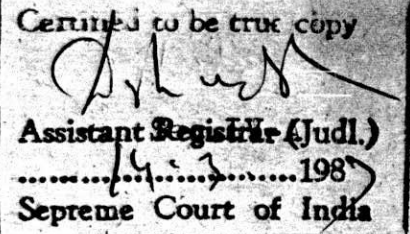 Certified to be true copy
Assistant Registrar (Judl.)
14.3.1987
Sepreme Court of India